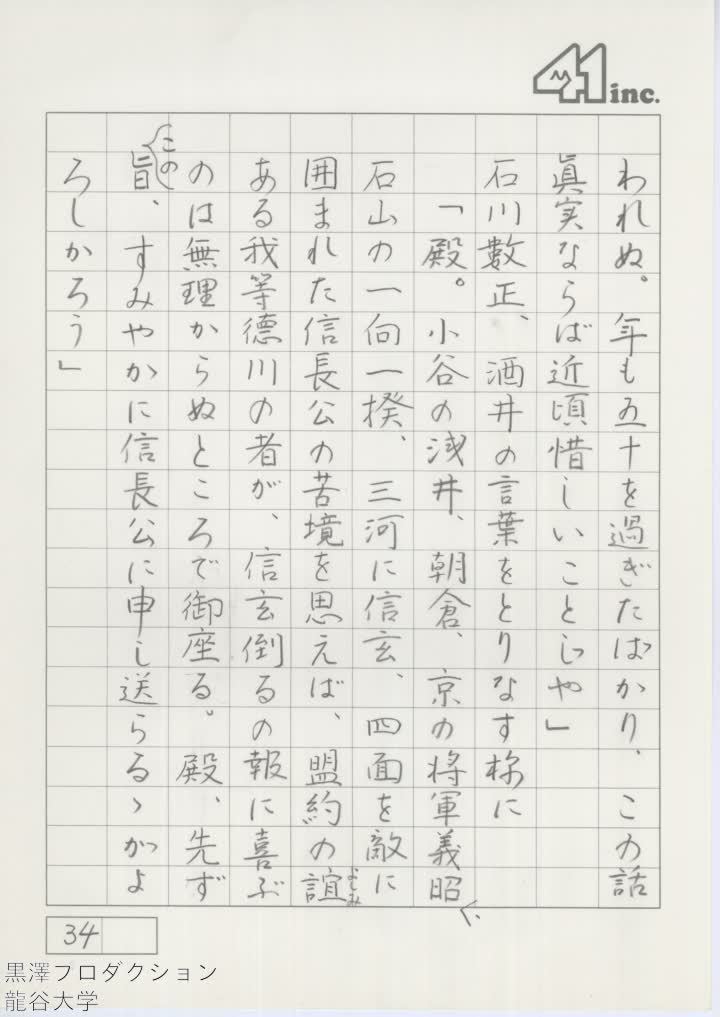 41 inc.
われぬ。年も五十を過ぎたばかり、この話
眞実ならば近頃惜しいことじゃ」
石川數正、酒井の言葉をとりなす様に
「殿。小谷の浅井、朝倉、京の将軍義昭、
石山の一向一揆、三河に信玄、四面を敵に
囲まれた信長公の苦境を思えば、盟約の誼
よしみ
ある我等德川の者が、信玄倒るの報に喜ぶ
のは無理からぬところで御座る。殿、先ず
この
旨、すみやかに信長公に申し送らるゝがよ
ろしかろう」
34
黒澤プロダクション
龍谷大学